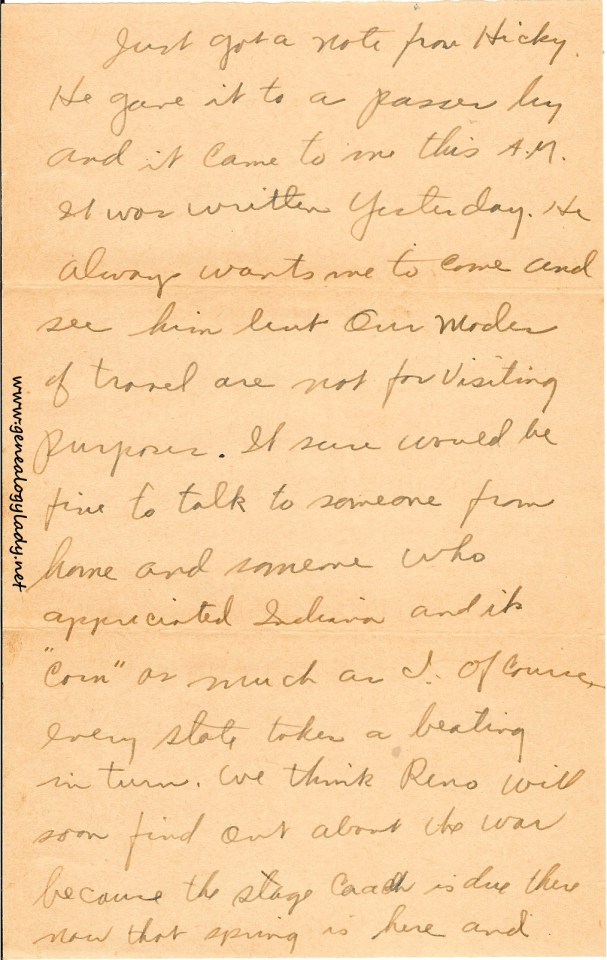 Just got a note from Hicky.
He gave it to a passer by
and it came to me this A.M.
It was written yesterday. He
always wants me to come and
see him but our modes
of travel are not for visiting
purposes. It sure would be
fine to talk to someone from
home and someone who
appreciated Indiana and its
"corn" as much as I. Of course,
every state takes a beating
in turn. We think Reno will
soon find out about the war
because the stage coach is due there
now that spring is here and
www.genealogylady.net